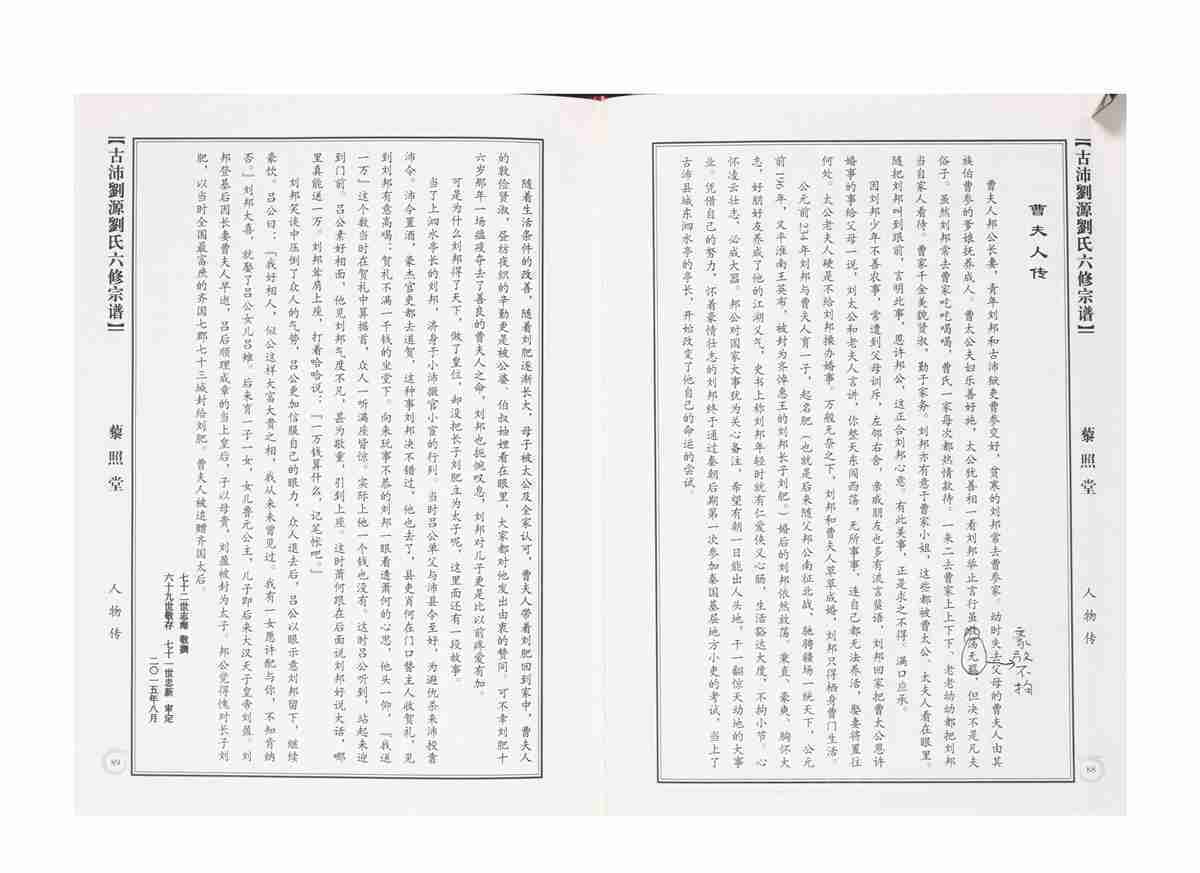 【古沛劉源劉氏六修宗谱】
藜照堂
人物传
88
曹夫人传
曹夫人邦公长妻，青年刘邦和古沛狱吏曹参交好，贫寒的刘邦常去曹参家。幼时失去父母的曹夫人由其
族伯曹参的爹娘抚养成人。曹太公夫妇乐善好施，太公犹善相一看刘邦举止言行虽浩荡无羁，但决不是凡夫
豪放不拘
俗子。虽然刘邦常去曹家吃吃喝喝，曹氏一家每次都热情款待。一来二去曹家上上下下、老老幼幼都把刘邦
当自家人看待。曹家千金美貌贤淑，勤于家务。刘邦亦有意于曹家小姐，这些都被曹太公、太夫人看在眼里。
随把刘邦叫到跟前，言明此事，恩许邦公，这正合刘邦心意。有此美事，正是求之不得。满口应承。
因刘邦少年不善农事，常遭到父母训斥，左邻右舍，亲戚朋友也多有流言蜚语，刘邦回家把曹太公恩许
婚事的事给父母一说，刘太公和老夫人言讲，你整天东闯西荡，无所事事，连自己都无法养活，娶妻将置往
何处。太公老夫人硬是不给刘邦操办婚事。万般无奈之下，刘邦和曹夫人草草成婚，刘邦只得栖身曹门生活。
公元前234年刘邦与曹夫人育一子，起名肥（也就是后来随父邦公南征北战，驰骋疆场一统天下，公元
前196年，又平淮南王英布，被封为齐悼惠王的刘邦长子刘肥。）婚后的刘邦依然放荡。秉直、豪爽、胸怀大
志，好朋好友养成了他的江湖义气，史书上称刘邦年轻时就有仁爱侠义心肠，生活豁达大度，不拘小节。心
怀凌云壮志，必成大器。邦公对国家大事犹为关心备注，希望有朝一日能出人头地，干一翻惊天动地的大事
业。凭借自己的努力，怀着豪情壮志的刘邦终于通过秦朝后期第一次参加秦国基层地方小吏的考试，当上了
古沛县城东泗水亭的亭长，开始改变了他自己的命运的尝试。
随着生活条件的改善，随着刘肥逐渐长大，母子被太公及全家认可，曹夫人带着刘肥回到家中，曹夫人
的敦俭贤淑，昼纺夜织的辛勤更是被公婆、伯叔妯娌看在眼里，大家都对他发出由衷的赞同。可不幸刘肥十
六岁那年一场瘟疫夺去了善良的曹夫人之命，刘邦也扼惋叹息，刘邦对儿子更是比以前疼爱有加。
可是为什么刘邦得了天下，做了皇位，却没把长子刘肥立为太子呢，这里面还有一段故事。
当了上泗水亭长的刘邦，济身于小沛撒官小宦的行列。当时吕公单父与沛县令至好，为避仇杀来沛投耆
沛令。沛令置酒，豪杰官吏都去道贺，这种事刘邦决不错过，他也去了，县吏肖何在门口替主人收贺礼，见
到刘邦有意高喝：贺礼不满一千钱的坐堂下。向来玩事不恭的刘邦一眼看透萧何的心思，他头一仰，『我送
一万』这个数当时在贺礼中算据首，众人一听满座皆惊。实际上他一个钱也没有。这时吕公听到，站起来迎
到门前。吕公素好相面，他见刘邦气度不凡，甚为敬重，引到上座。这时萧何跟在后面说刘邦好说大话，哪
里真能送一万。刘邦耸肩上座，打着哈哈说：『一万钱算什么，记笔帐吧。』
刘邦笑谈中压倒了众人的气势，吕公更加信服自己的眼力，众人退去后，吕公以眼示意刘邦留下，继续
豪饮。吕公曰：『我好相人，似公这样大富大贵之相，我从来未曾见过。我有一女愿许配与你，不知肯纳
否。』刘邦大喜，就娶了吕公女儿吕雉。后来育一子一女，女儿鲁元公主，儿子即后来大汉天子皇帝刘盈。刘
邦登基后因长妻曹夫人早逝，吕后顺理成章的当上皇后，子以母贵，刘盈被封为太子。邦公觉得愧对长子刘
肥，以当时全国最富庶的齐国七郡七十三城封给刘肥。曹夫人被追赠齐国太后。
七十二世志海 敬撰
六十九世敬存 七十一世忠新 审定
二〇一五年八月
【古沛劉源劉氏六修宗谱】
藜照堂
人物传
89